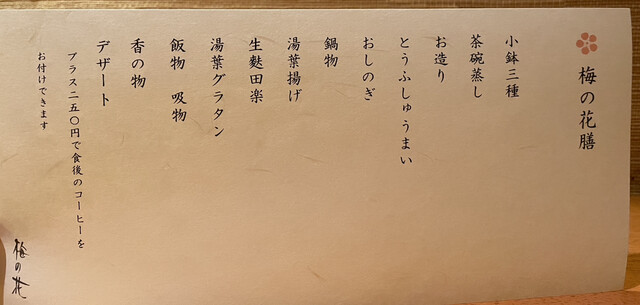 梅の花膳
小鉢三種
茶碗蒸し
お造り
とうふしゅうまい
おしのぎ
鍋物
湯葉揚げ
生麩田楽
湯葉グラタン
飯物 吸物
香の物
デザート
プラス二五〇円で食後のコーヒーを
お付けできます
梅の花